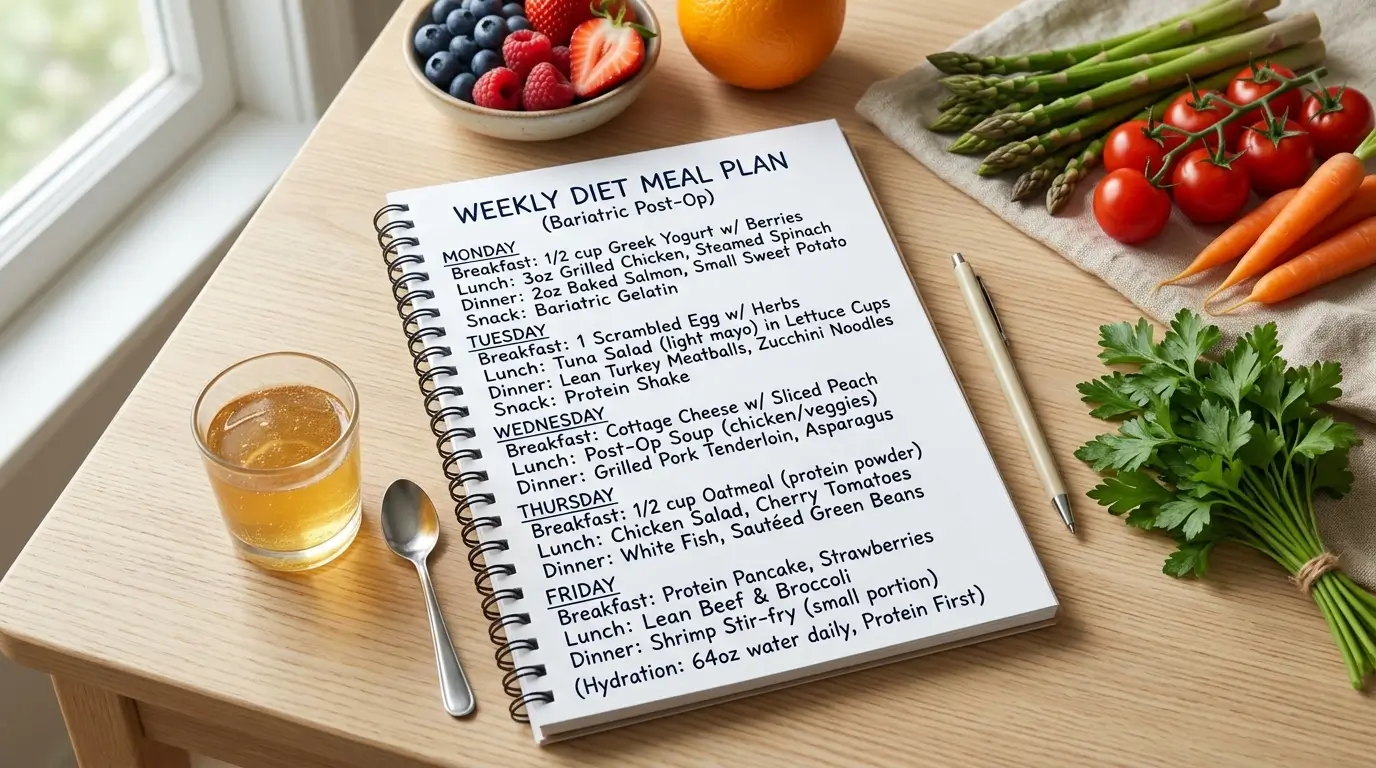 WEEKLY DIET MEAL PLAN
(Bariatric Post-Op)
MONDAY
Breakfast: 1/2 cup Greek Yogurt w/ Berries
Lunch: 3oz Grilled Chicken, Steamed Spinach
Dinner: 2oz Baked Salmon, Small Sweet Potato
Snack: Bariatric Gelatin
TUESDAY
Breakfast: 1 Scrambled Egg w/ Herbs
Lunch: Tuna Salad (light mayo) in Lettuce Cups
Dinner: Lean Turkey Meatballs, Zucchini Noodles
Snack: Protein Shake
WEDNESDAY
Breakfast: Cottage Cheese w/ Sliced Peach
Lunch: Post-Op Soup (chicken/veggies)
Dinner: Grilled Pork Tenderloin, Asparagus
THURSDAY
Breakfast: 1/2 cup Oatmeal (protein powder)
Lunch: Chicken Salad, Cherry Tomatoes
Dinner: White Fish, Sautéed Green Beans
FRIDAY
Breakfast: Protein Pancake, Strawberries
Lunch: Lean Beef & Broccoli
Dinner: Shrimp Stir-fry (small portion)
(Hydration: 64oz water daily, Protein First)